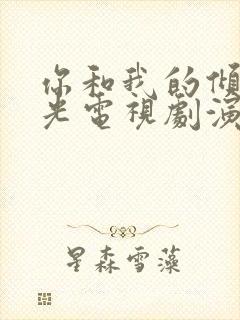 你和我的傾
光電視劇演
星森雪藻